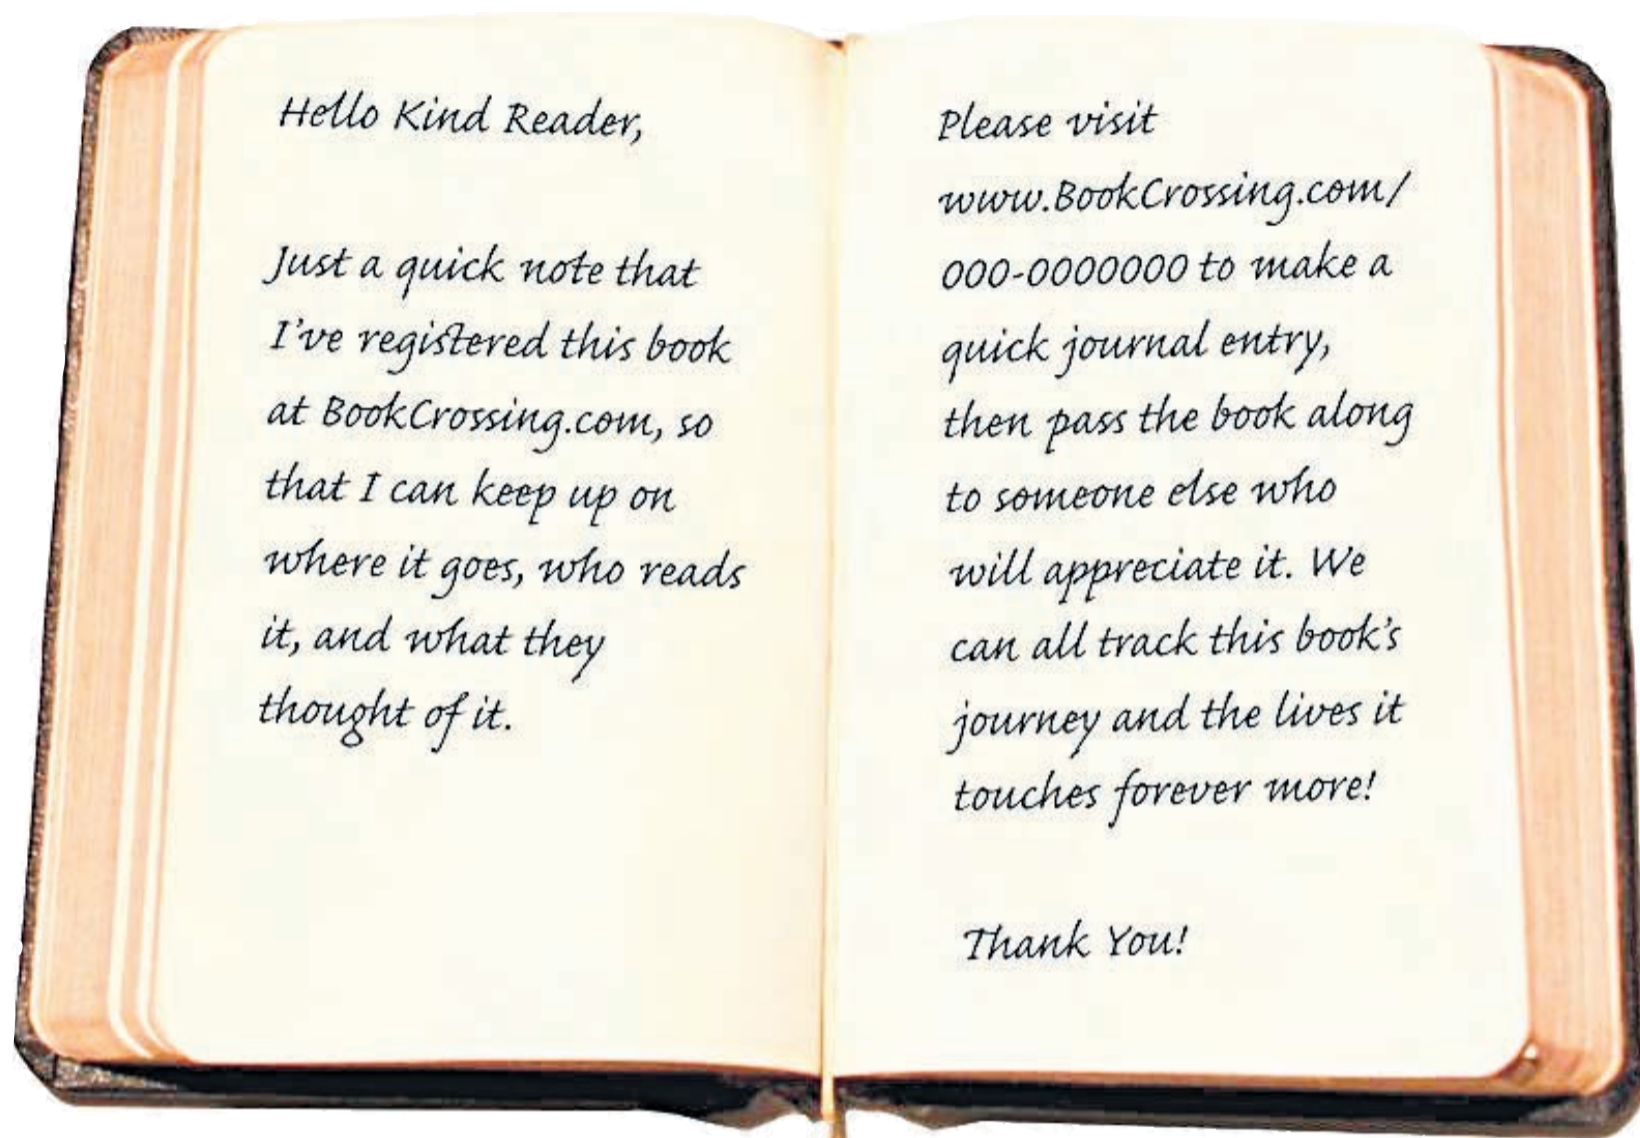 Hello Kind Reader,
Just a quick note that
I've registered this book
at BookCrossing.com, so
that I can keep up on
where it goes, who reads
it, and what they
thought of it.
Please visit
www.BookCrossing.com/
000-0000000 to make a
quick journal entry,
then pass the book along
to someone else who
will appreciate it. We
can all track this book's
journey and the lives it
touches forever more!
Thank You!